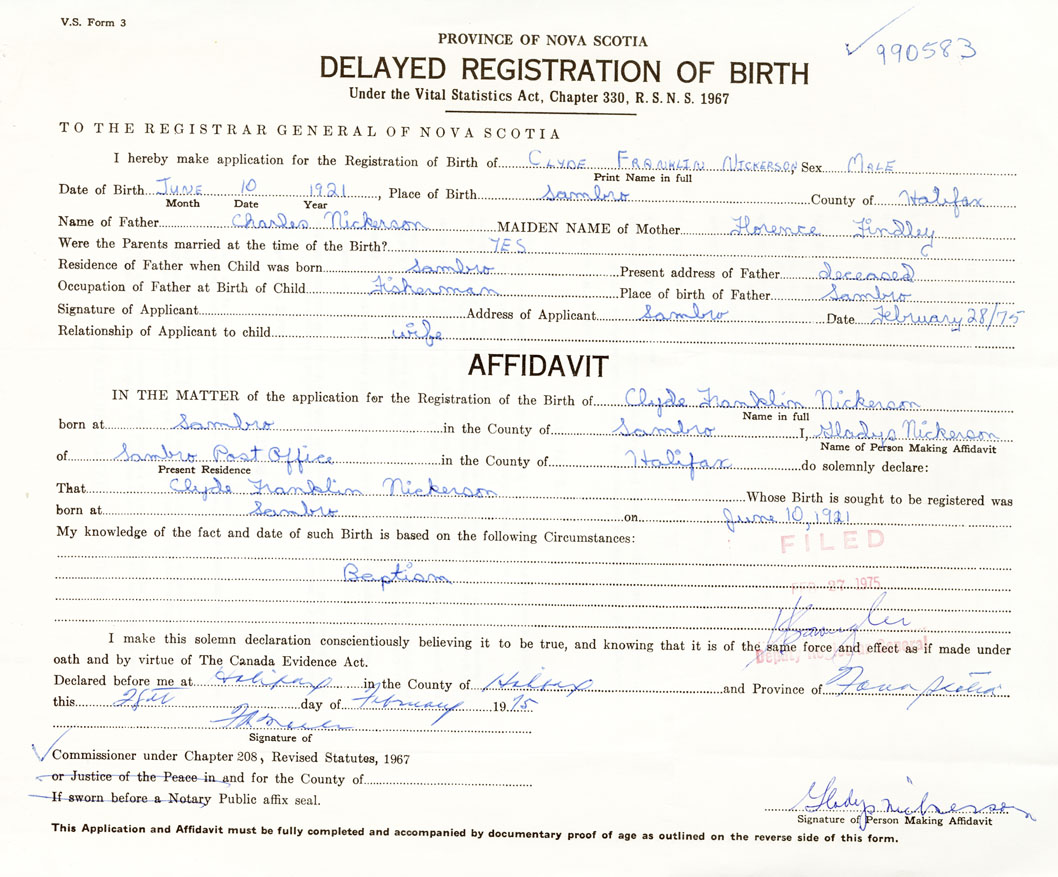 V.S. Form 3
990583
PROVINCE OF NOVA SCOTIA
DELAYED REGISTRATION OF BIRTH
Under the Vital Statistics Act, Chapter 330, R.S.N.S. 1967
TO THE REGISTRAR GENERAL OF NOVA SCOTIA
I hereby make application for the Registration of Birth of CLYDE FRANKLIN NICKERSON, Sex MALE
Print Name in full
Date of Birth JUNE 10 1921, Place of Birth Sambro County of Halifax
Month Date Year
Name of Father Charles Nickerson MAIDEN NAME of Mother Florence Findley
Were the Parents married at the time of the Birth? YES
Residence of Father when Child was born Sambro Present address of Father deceased
Occupation of Father at Birth of Child Fisherman Place of birth of Father Sambro
Signature of Applicant Address of Applicant Sambro Date February 28/75
Relationship of Applicant to child wife
AFFIDAVIT
IN THE MATTER of the application for the Registration of the Birth of Clyde Franklin Nickerson
Name in full
born at Sambro in the County of Sambro I, Gladys Nickerson
Name of Person Making Affidavit
of Sambro Post Office in the County of Halifax do solemnly declare:
Present Residence
That Clyde Franklin Nickerson Whose Birth is sought to be registered was
born at Sambro on June 10, 1921
My knowledge of the fact and date of such Birth is based on the following Circumstances:
FILED
Baptism
27 1975
I make this solemn declaration conscientiously believing it to be true, and knowing that it is of the same force and effect as if made under
Deputy Registrar General
oath and by virtue of The Canada Evidence Act.
Declared before me at Halifax in the County of Halifax and Province of Nova Scotia
this 28th day of February 1975
Signature of
Commissioner under Chapter 208, Revised Statutes, 1967
or Justice of the Peace in and for the County of
If sworn before a Notary Public affix seal.
Gladys Nickerson
Signature of Person Making Affidavit
This Application and Affidavit must be fully completed and accompanied by documentary proof of age as outlined on the reverse side of this form.